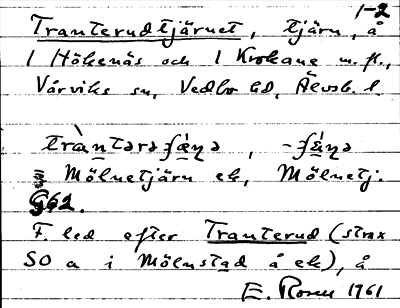 1-2
Tranterudtjärnet, tjärn, å
1 Hökenäs och 1 Krokane m.fl.,
Värviks sn, Vedbo hd, Älvsb. l.
tràntərəʃæ̀ɳə, -ʃæ̀ɳə
Mölnetjärn ek, Mölnetj.
G62.
F. led efter Tranterud (strax
SO a i Mölnstad å ek), å
E. Rosen 1961